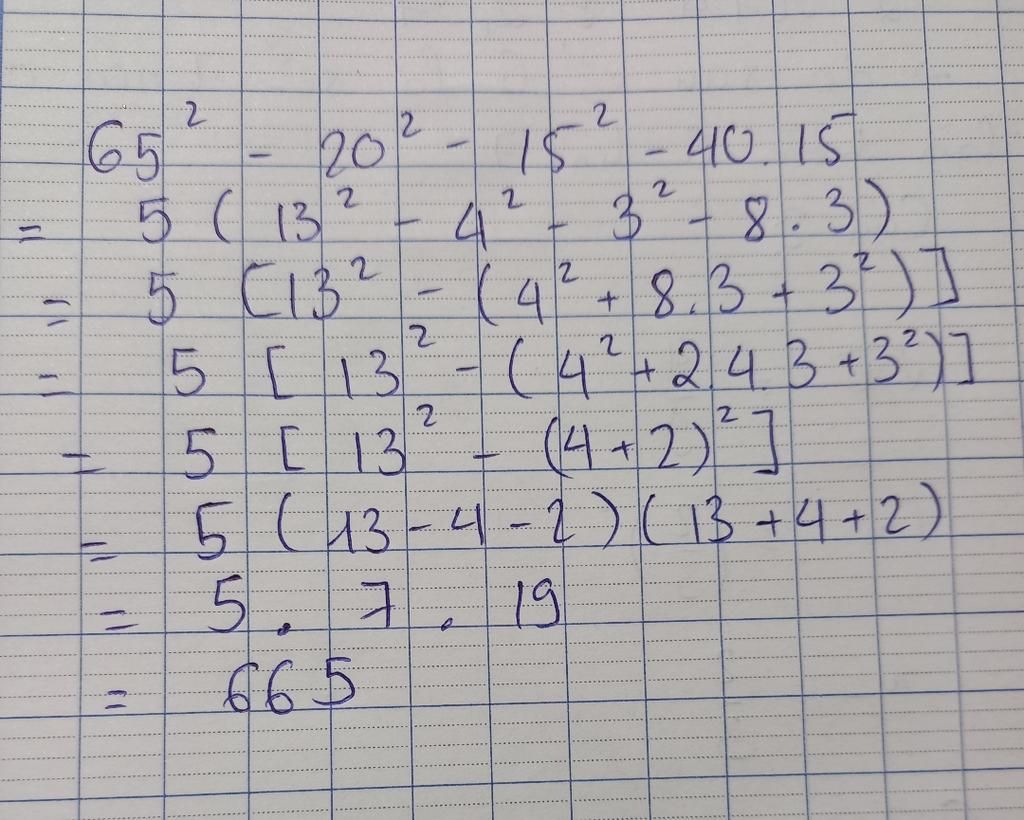 65² - 20² - 15² - 40.15
= 5 ( 13² - 4² - 3² - 8.3)
= 5 [13² - (4² + 8.3 + 3²)]
= 5 [ 13² - (4² + 2.4.3 + 3²)]
= 5 [ 13² - (4 + 2)²]
= 5 ( 13 - 4 - 2) (13 + 4 + 2)
= 5 . 7 . 19
= 665